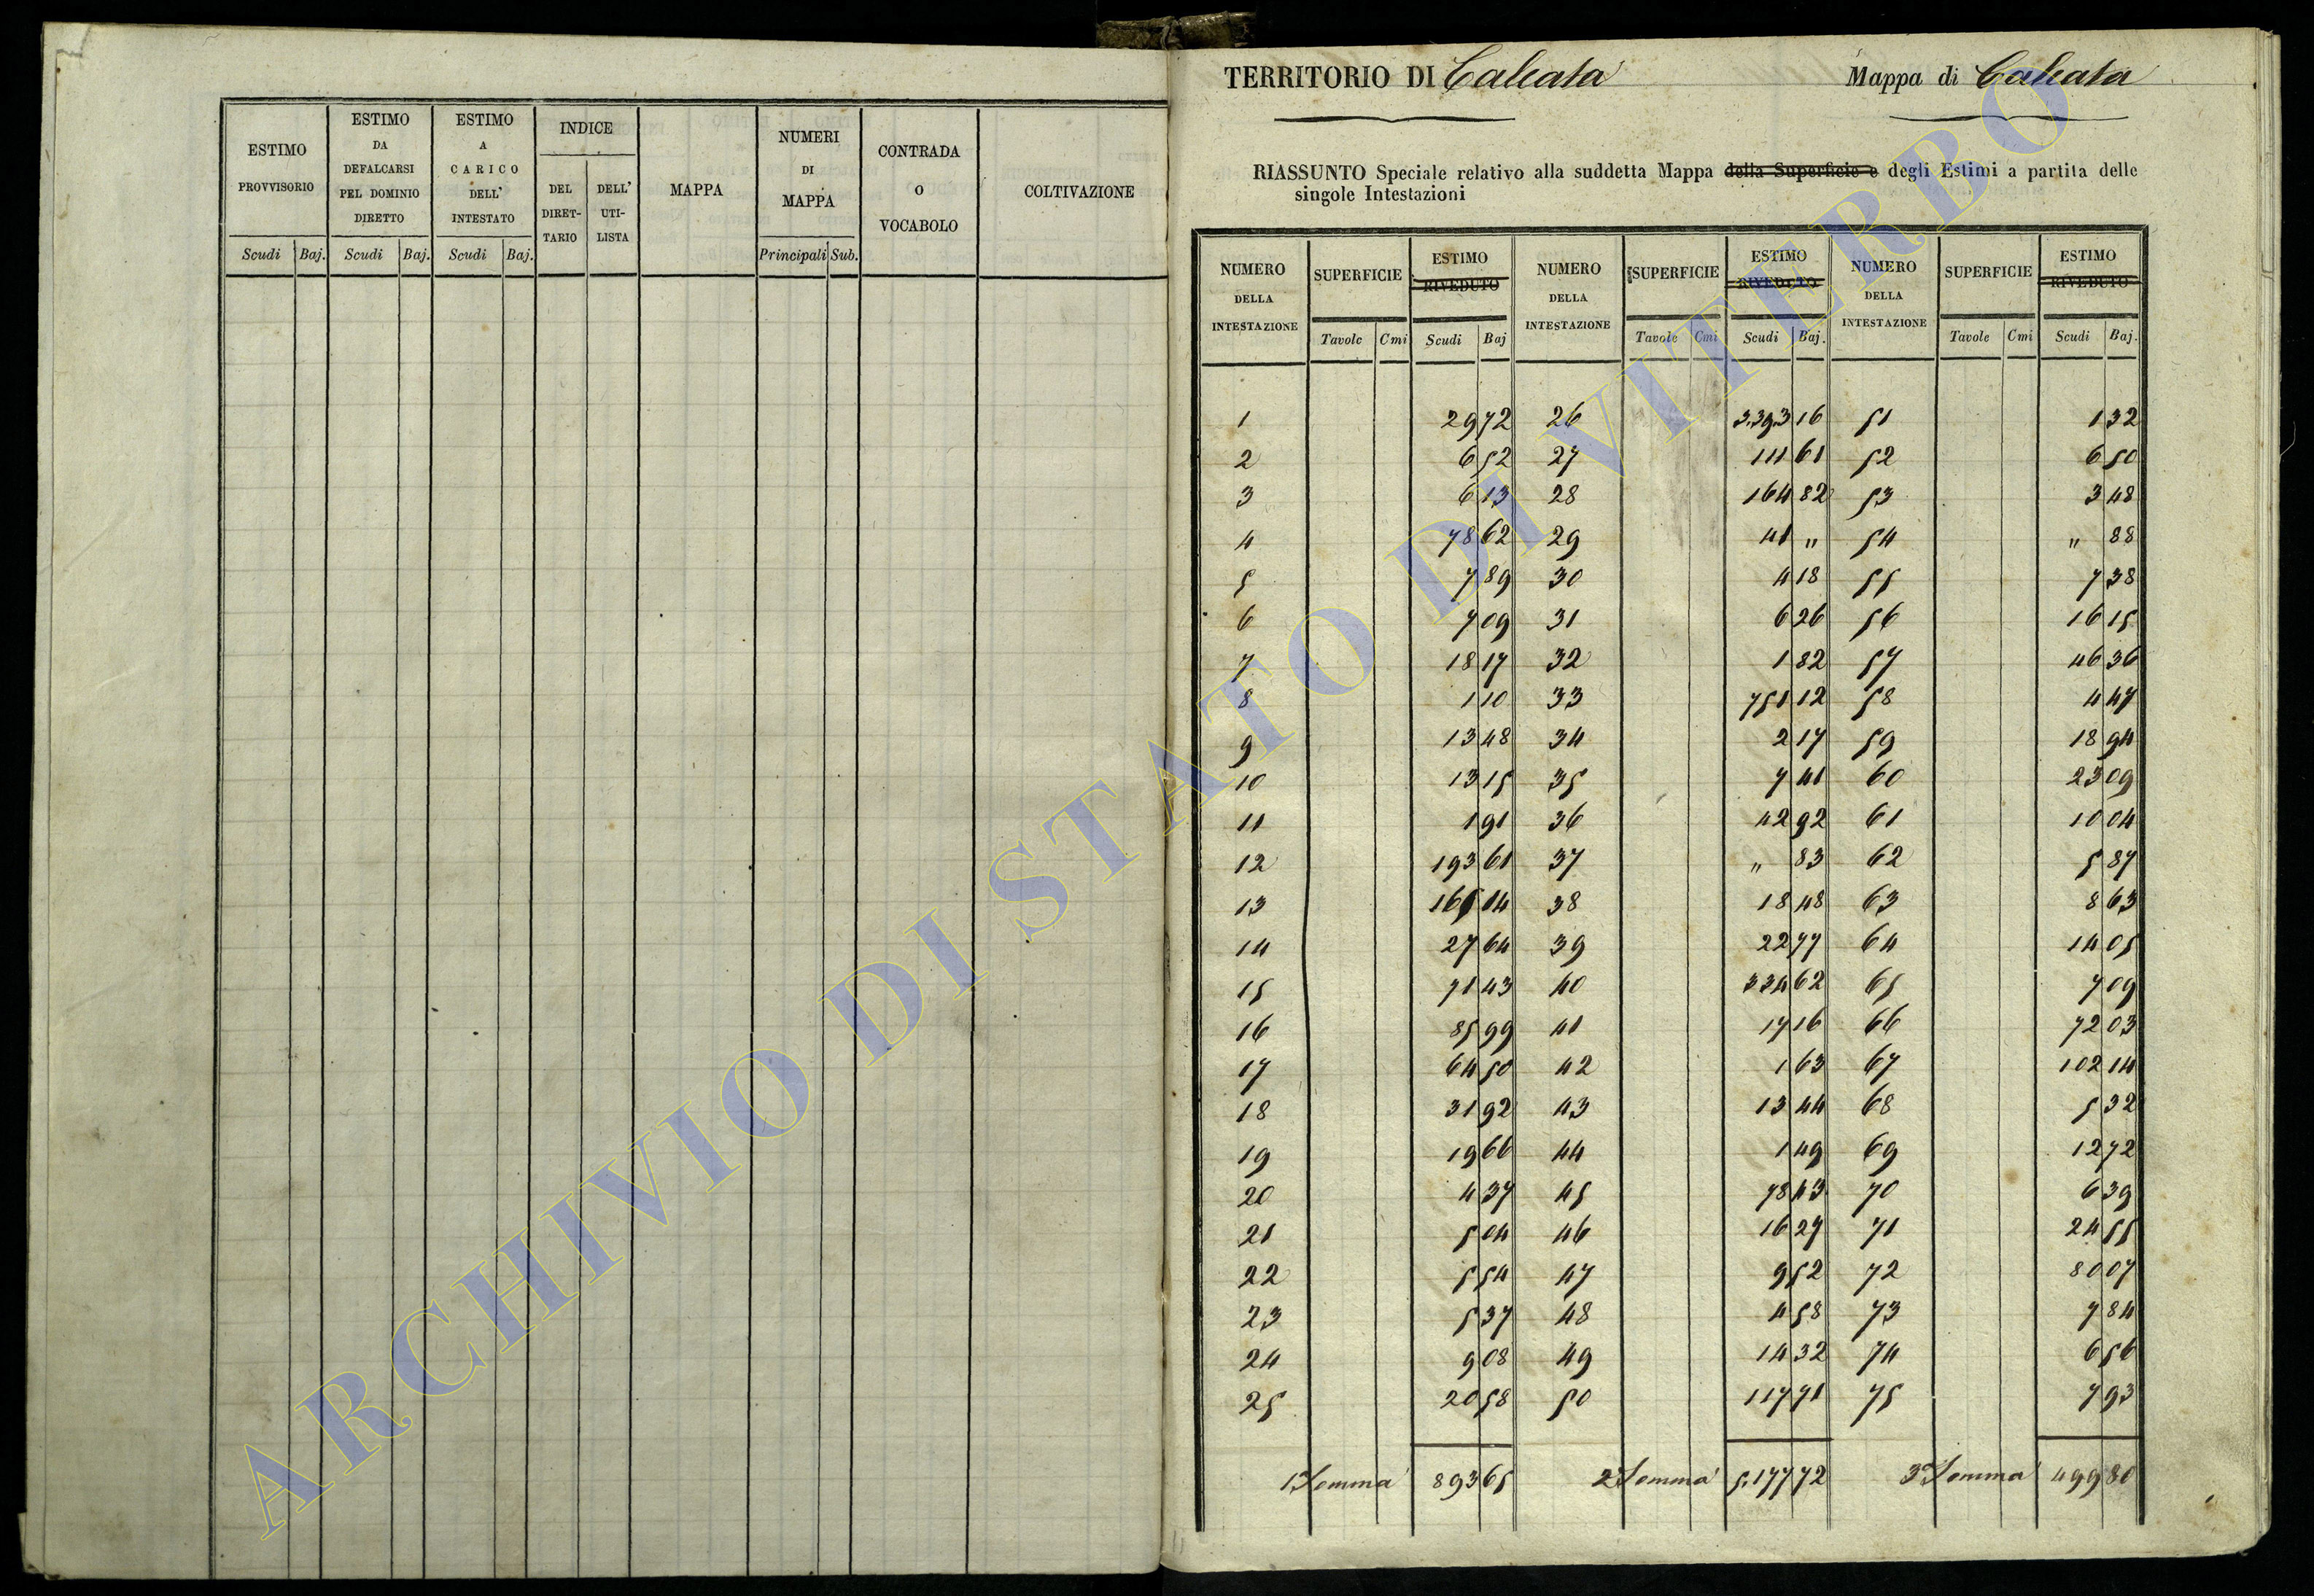 ESTIMO PROVVISORIO
Scudi Baj.
ESTIMO DA DEFALCARSI PEL DOMINIO DIRETTO
Scudi Baj.
ESTIMO A CARICO DELL' INTESTATO
Scudi Baj.
INDICE
DEL DIRET-TARIO
DELL' UTI-LISTA
MAPPA
NUMERI DI MAPPA
Principali Sub.
CONTRADA O VOCABOLO
COLTIVAZIONE
TERRITORIO DI Calcata Mappa di Calcata
RIASSUNTO Speciale relativo alla suddetta Mappa della Superficie e degli Estimi a partita delle
singole Intestazioni
NUMERO DELLA INTESTAZIONE SUPERFICIE ESTIMO RIVEDUTO NUMERO DELLA INTESTAZIONE SUPERFICIE ESTIMO RIVEDUTO NUMERO DELLA INTESTAZIONE SUPERFICIE ESTIMO RIVEDUTO
Tavole Cmi Scudi Baj Tavole Cmi Scudi Baj. Tavole Cmi Scudi Baj.
1 29 72 26 3.393 16 51 1 32
2 6 52 27 111 61 52 6 50
3 6 13 28 164 82 53 3 48
4 78 62 29 41 " 54 " 88
5 7 89 30 4 18 55 7 38
6 7 09 31 6 26 56 16 15
7 18 17 32 1 82 57 46 36
8 1 10 33 751 12 58 4 47
9 13 48 34 2 17 59 18 94
10 13 15 35 7 41 60 23 09
11 1 91 36 42 92 61 10 04
12 193 61 37 " 83 62 5 87
13 165 14 38 18 48 63 8 63
14 27 64 39 22 77 64 14 05
15 71 43 40 334 62 65 7 09
16 85 99 41 17 16 66 72 03
17 64 50 42 1 63 67 102 14
18 31 92 43 13 44 68 5 32
19 19 66 44 1 49 69 12 72
20 4 37 45 78 43 70 6 39
21 5 04 46 16 27 71 24 55
22 5 54 47 9 52 72 80 07
23 5 37 48 4 58 73 7 84
24 9 08 49 14 32 74 6 56
25 20 58 50 117 71 75 7 93
1ª Somma 893 65 2ª Somma 5.177 72 3ª Somma 499 80
ARCHIVIO DI STATO DI VITERBO